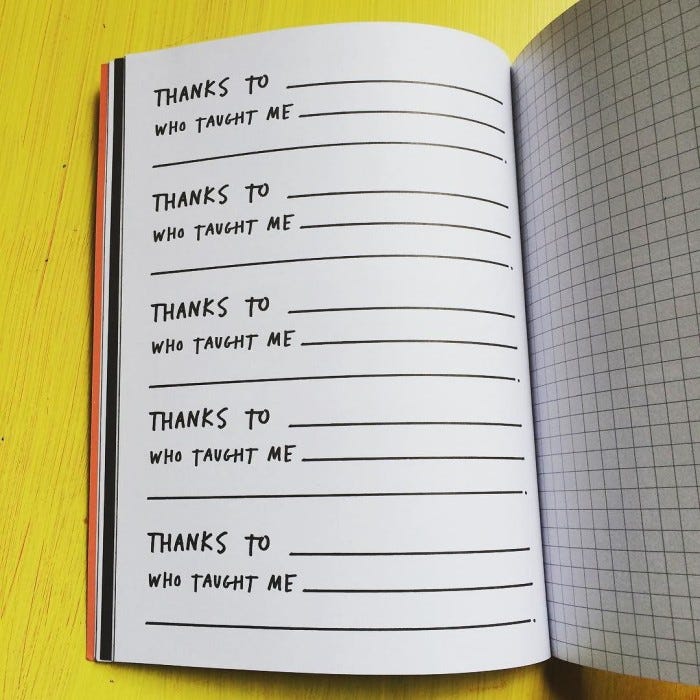 THANKS TO
WHO TAUGHT ME
.
THANKS TO
WHO TAUGHT ME
.
THANKS TO
WHO TAUGHT ME
.
THANKS TO
WHO TAUGHT ME
.
THANKS TO
WHO TAUGHT ME
.